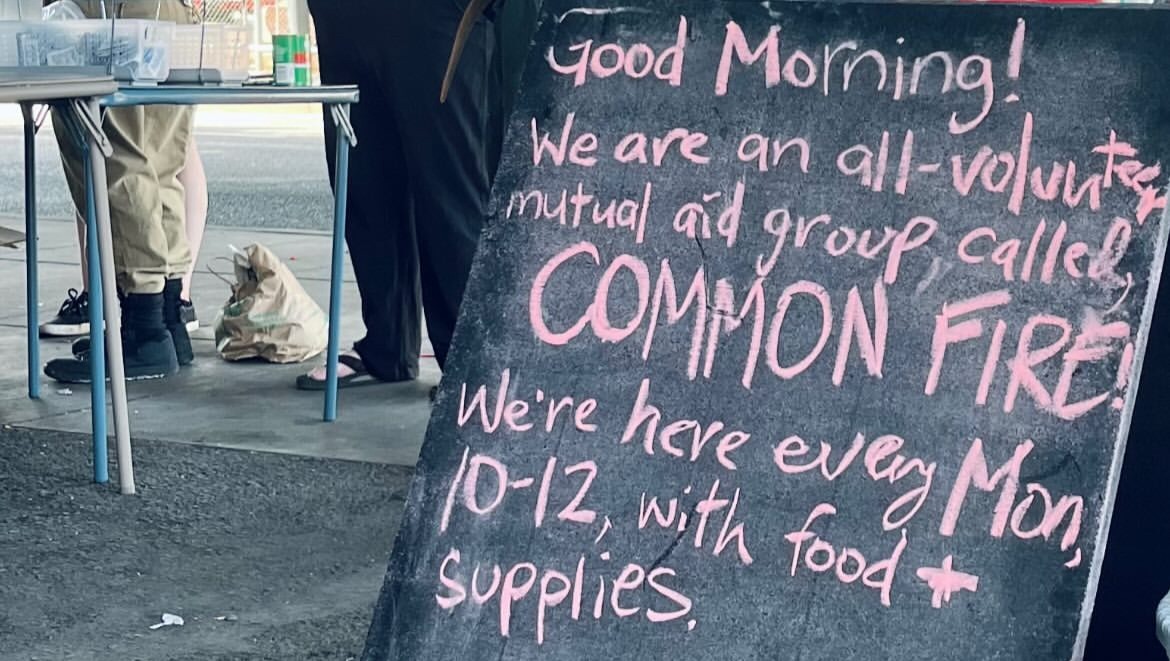 Good Morning!
We are an all-volunteer
mutual aid group, called,
COMMON FIRE!
We're here every Mon,
10-12, with food +
supplies.